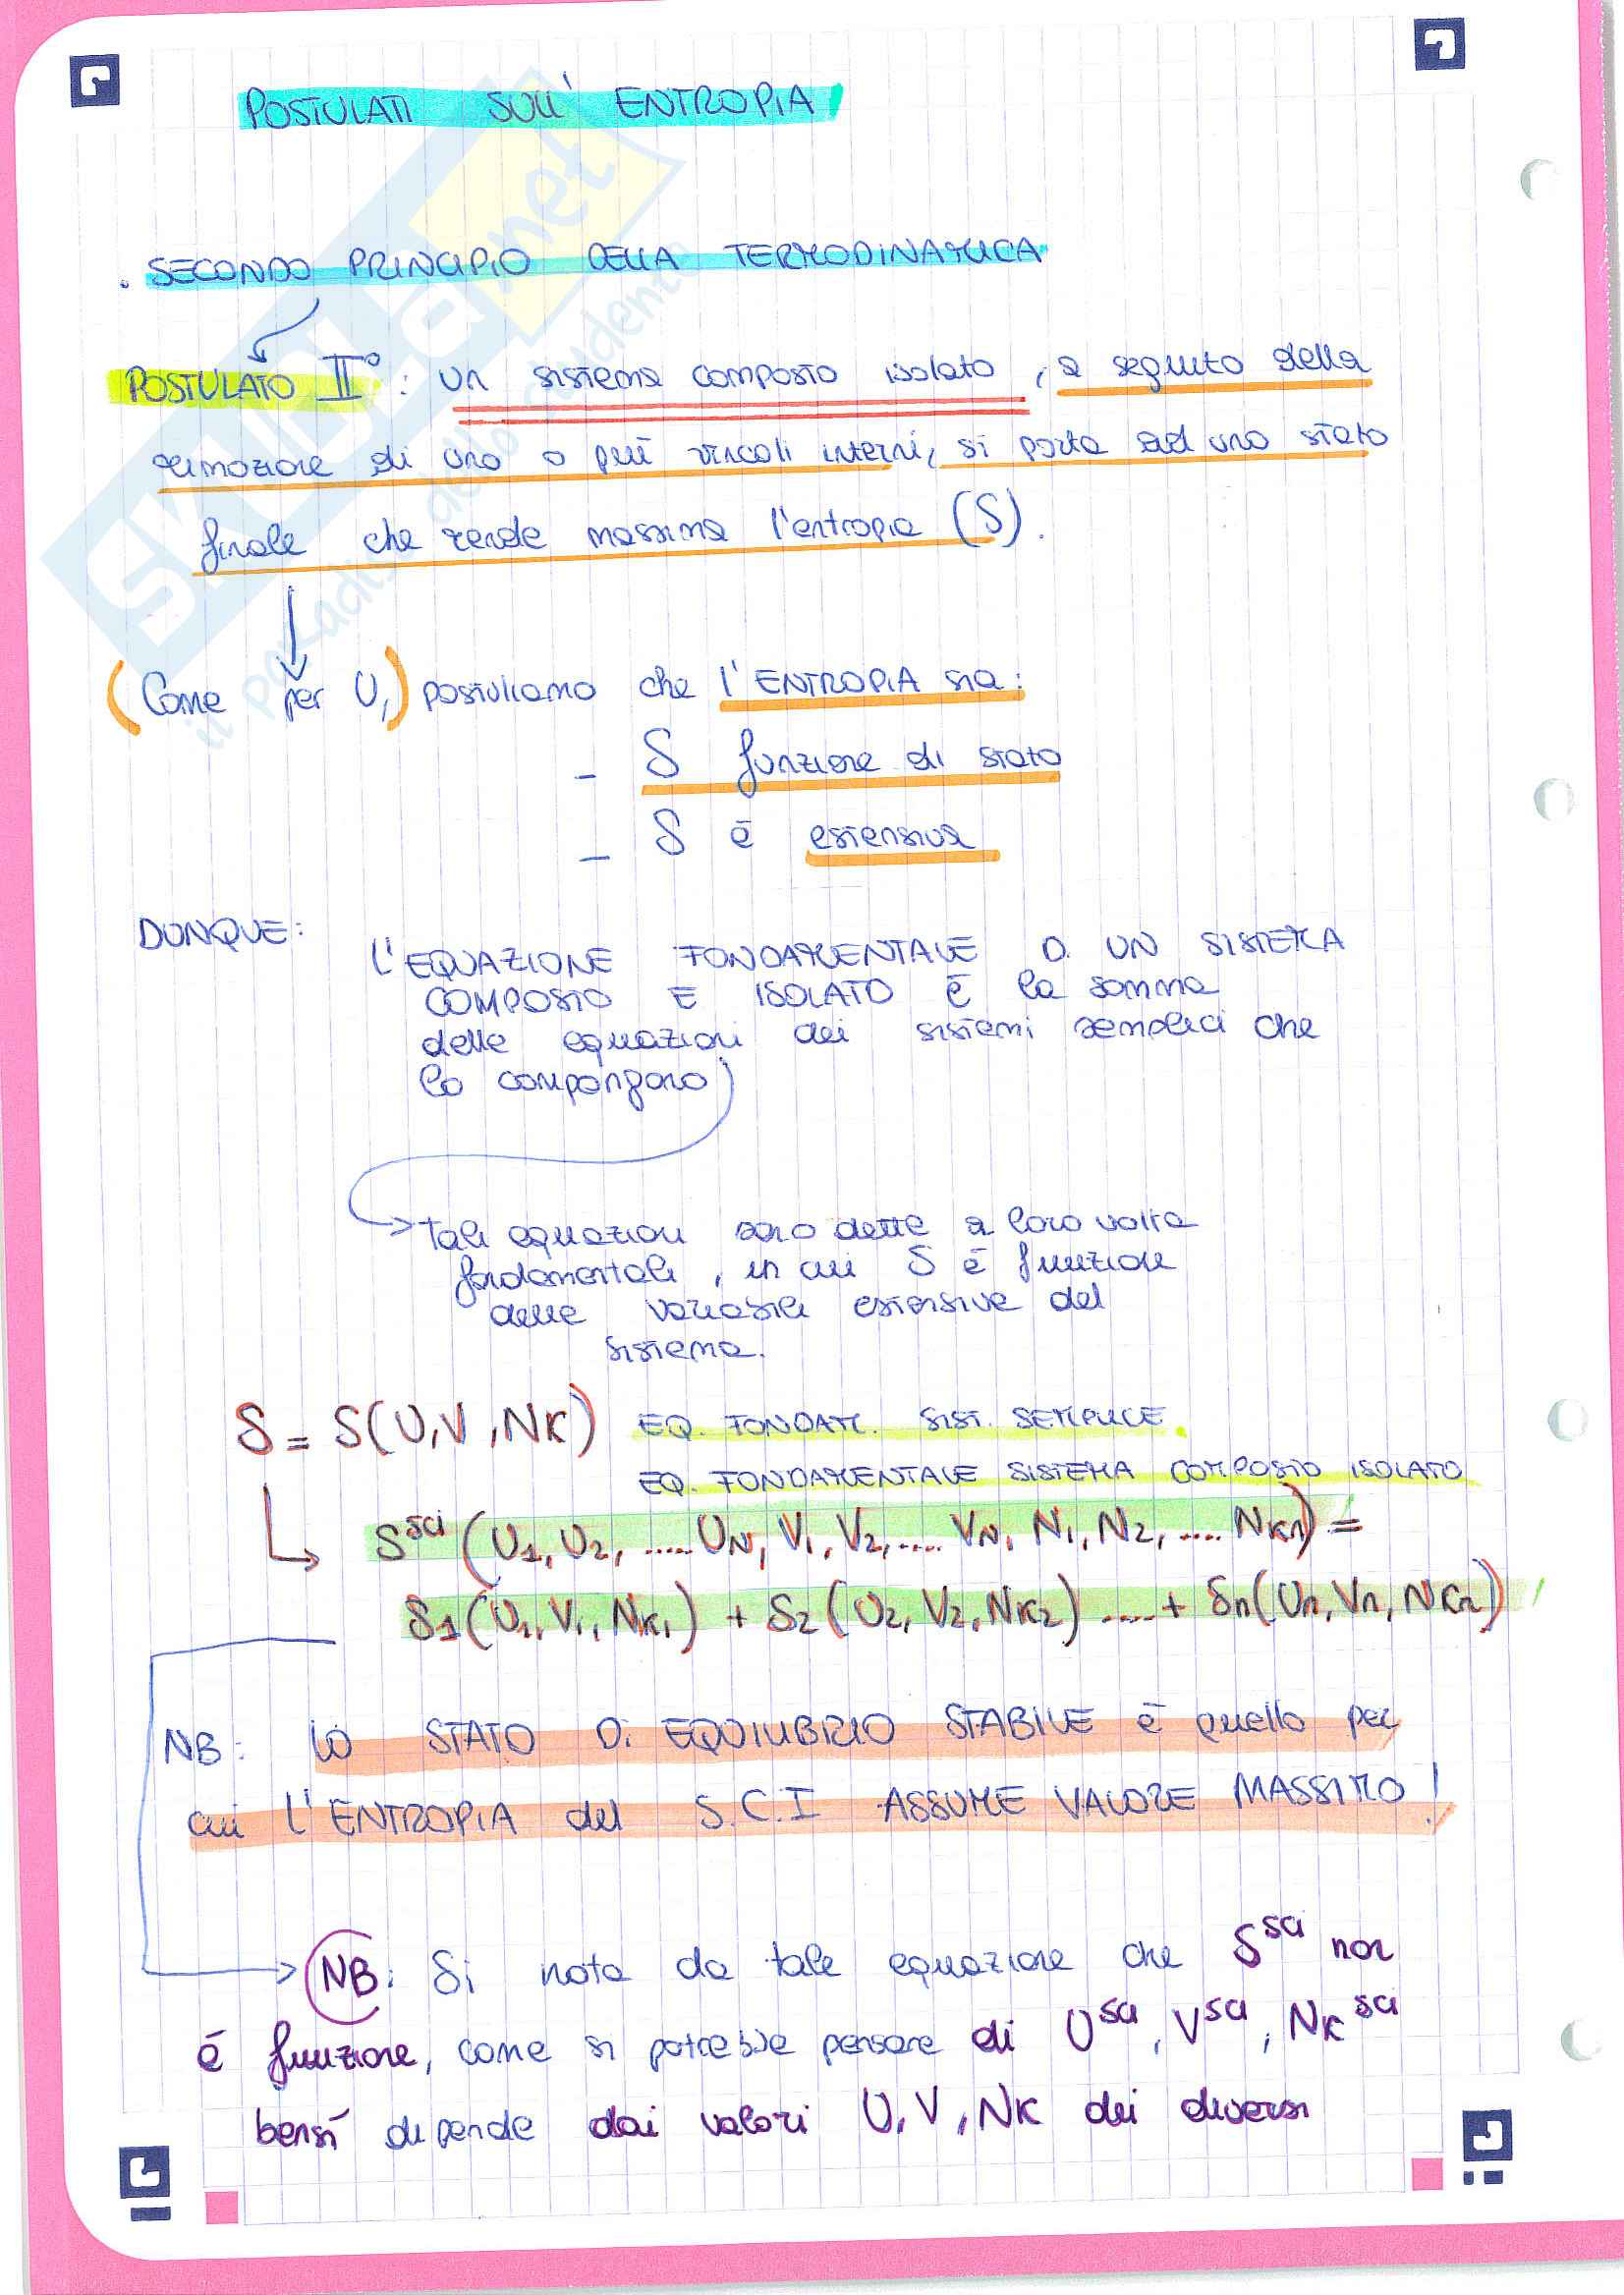 POSTULATI SULL' ENTROPIA
. SECONDO PRINCIPIO DELLA TERMODINAMICA
POSTULATO II° : un sistema composto isolato, a seguito della
rimozione di uno o più vincoli interni, si porta ad uno stato
finale che rende massima l'entropia (S).
(Come per U,) postuliamo che l'ENTROPIA sia:
- S funzione di stato
- S è estensiva
DUNQUE:
L'EQUAZIONE FONDAMENTALE D. UN SISTEMA
COMPOSTO E ISOLATO È la somma
delle equazioni dei sistemi semplici che
lo compongono)
→ Tali equazioni sono dette a loro volta
fondamentali, in cui S è funzione
delle variabili estensive del
sistema.
S = S(U,V,NK) EQ. FONDAM. SIST. SEMPLICE.
EQ. FONDAMENTALE SISTEMA COMPOSTO ISOLATO
S^sci (U1, U2, ..... UN, V1, V2, .... VN, N1, N2, .... NKn) =
S1(U1, V1, NK1) + S2(U2, V2, NK2) .....+ Sn(Un, Vn, NKn)
NB: LO STATO Di EQUILIBRIO STABILE è quello per
cui L'ENTROPIA del S.C.I ASSUME VALORE MASSIMO!
NB: Si nota da tale equazione che S^sci non
è funzione, come si potrebbe pensare di U^sci, V^sci, NK^sci
bensì dipende dai valori U, V, NK dei diversi
SKUOLA.net
il paradiso dello studente